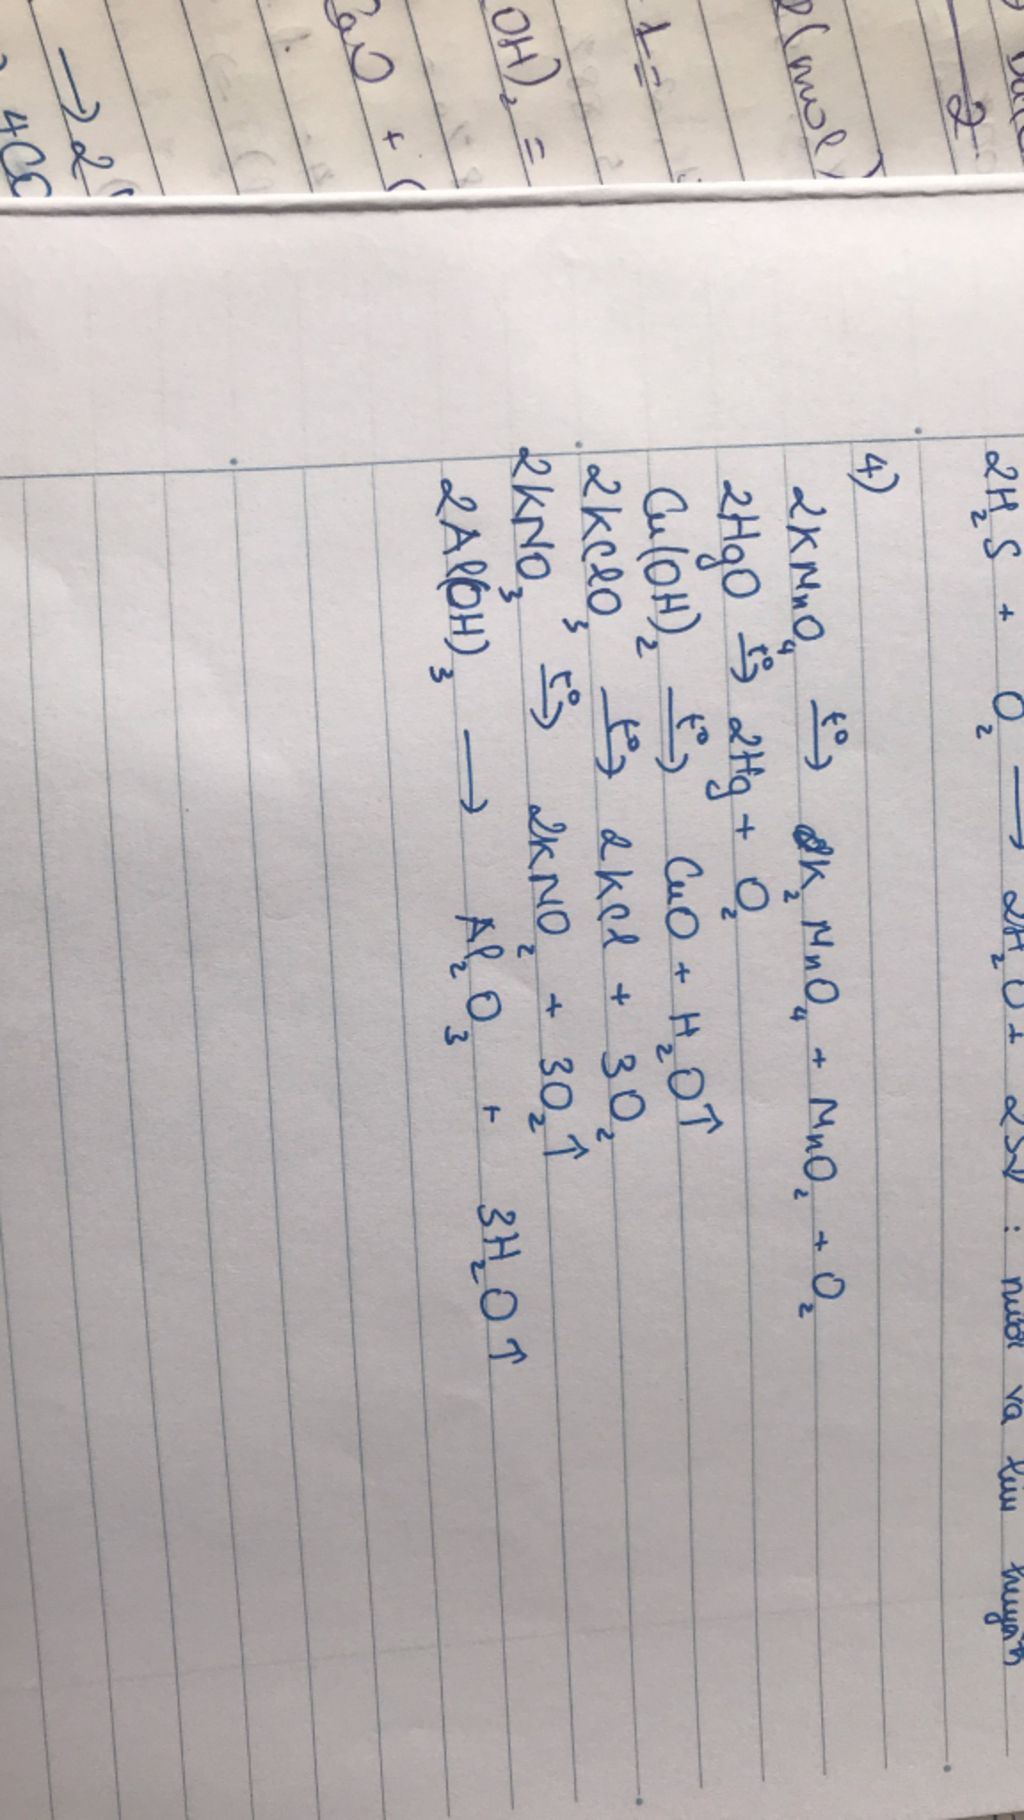 2H₂S + O₂ ⟶ 2H₂O + 2S↓ : nước và lưu huỳnh
4)
2KMnO₄ —t°→ K₂MnO₄ + MnO₂ + O₂
2HgO —t°→ 2Hg + O₂
Cu(OH)₂ —t°→ CuO + H₂O↑
2KClO₃ —t°→ 2KCl + 3O₂
2KNO₃ —t°→ 2KNO₂ + 3O₂↑
2Al(OH)₃ ⟶ Al₂O₃ + 3H₂O↑
2
(mol)
1 =
OH)₂ =
CaO + (
⟶ 2
4CO